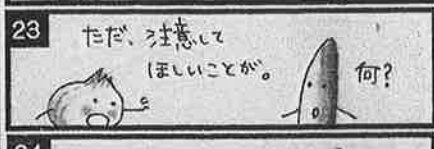 23
ただ、注意して
ほしいことが。
何?